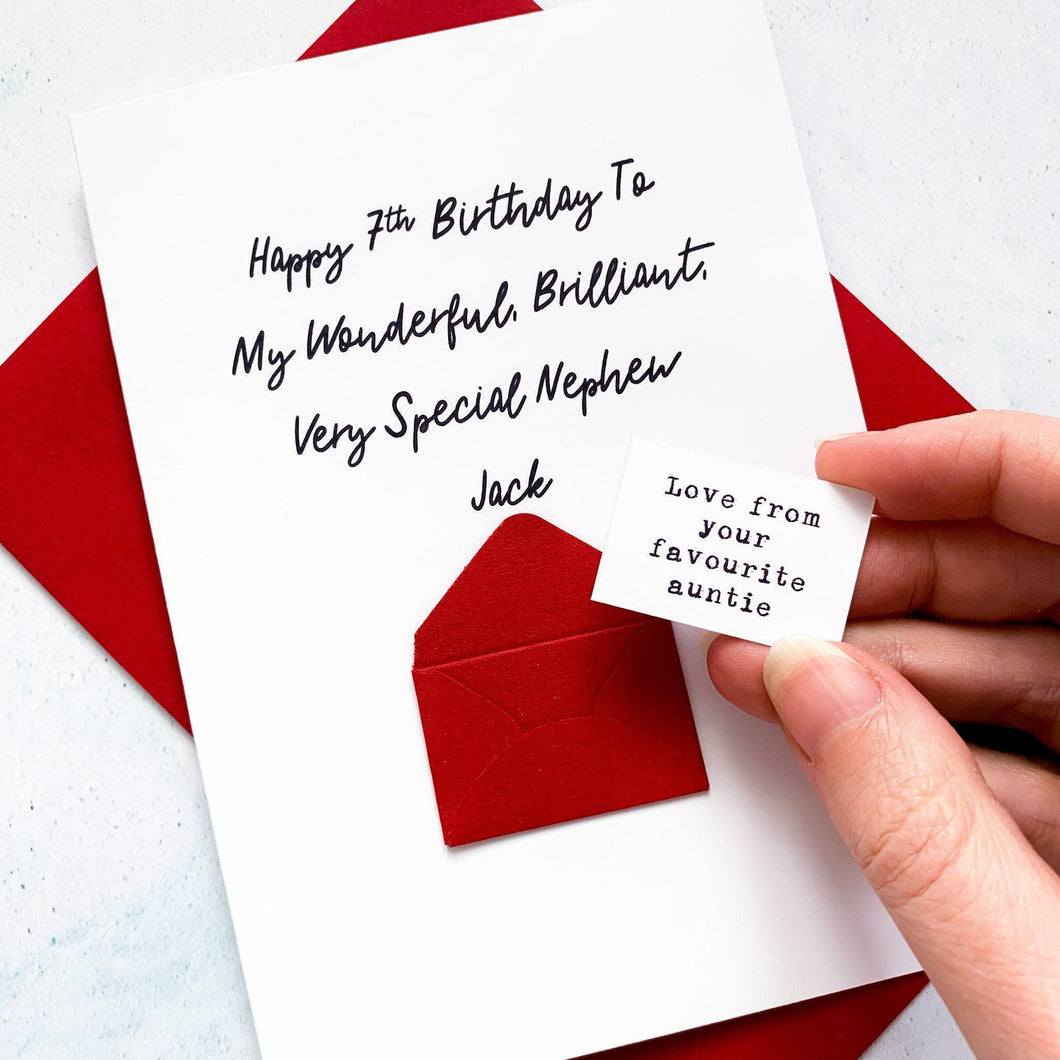 Happy 7th Birthday To
My Wonderful, Brilliant,
Very Special Nephew
Jack
Love from
your
favourite
auntie